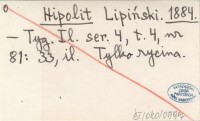 0
Hipolit Lipiński. 1884.
— Tyg. Il. ser. 4, t. 4, nr
81: 33, il. Tylko rycina.